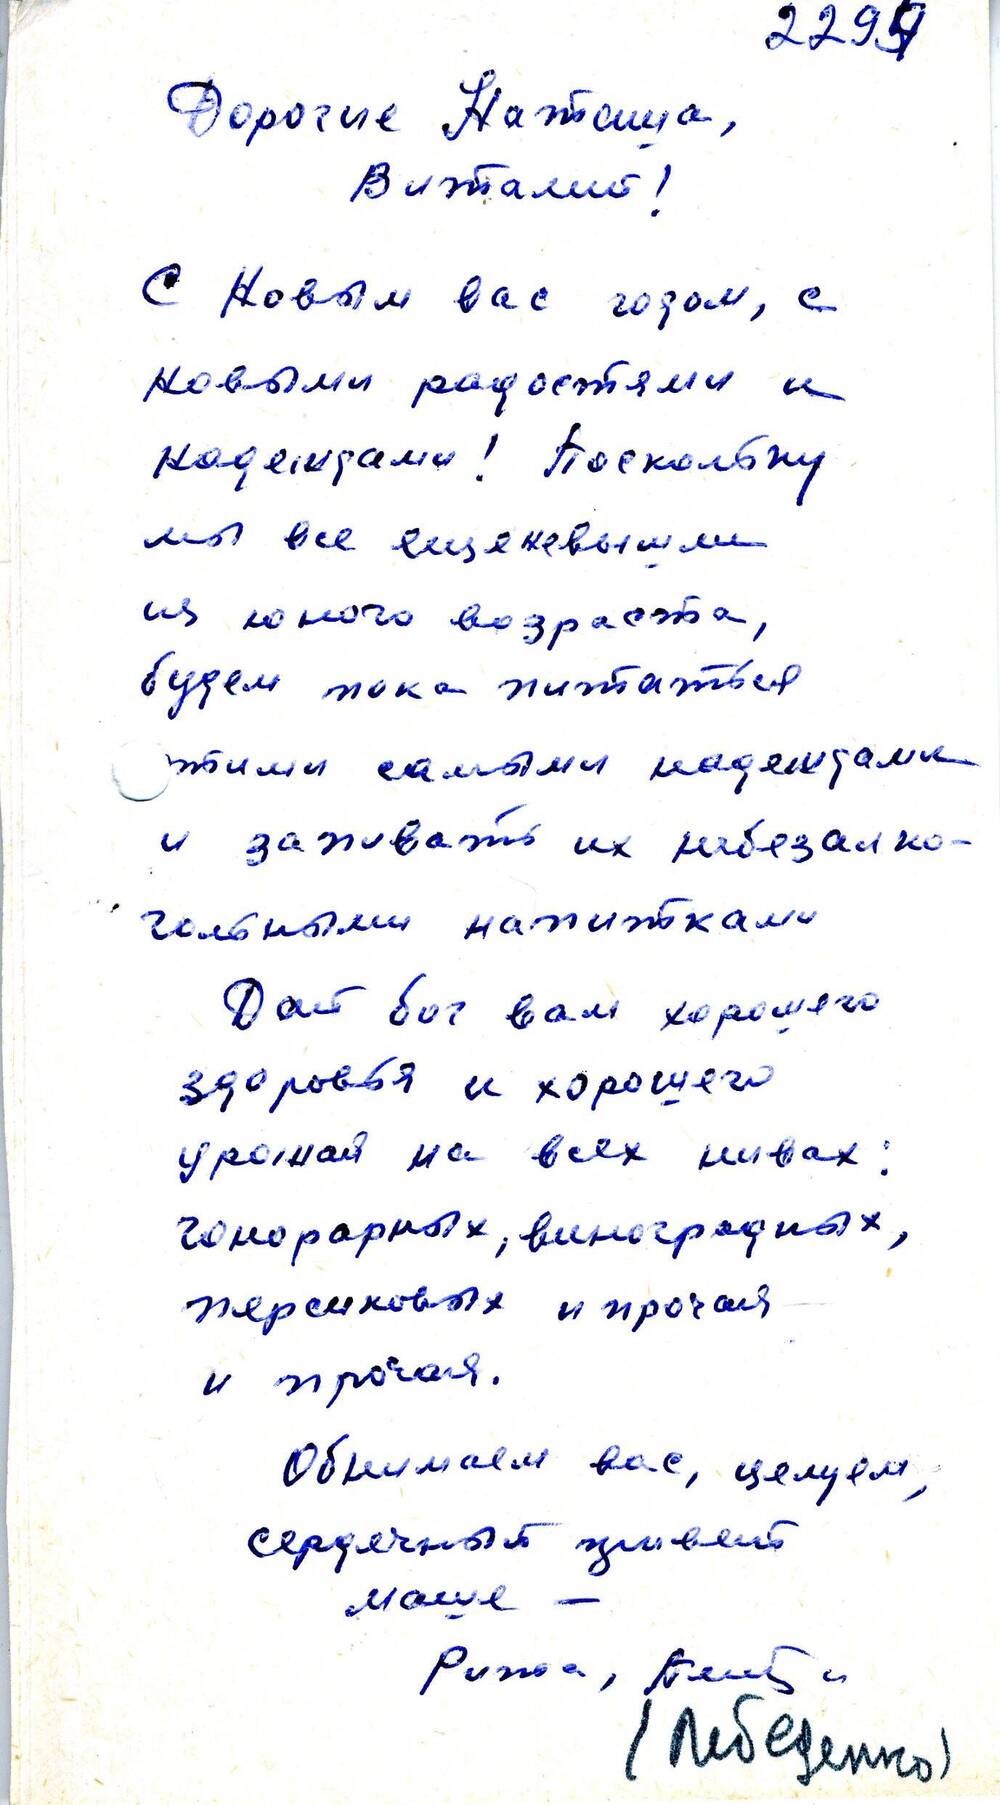 Дорогие Наташа,
Виталий!
С Новым вас годом, с
новыми радостями и
надеждами! Поскольку
мы все еще не вышли
из юного возраста,
будем пока питаться
этими самыми надеждами
и запивать их небезалко-
гольными напитками
Дай бог вам хорошего
здоровья и хорошего
урожая на всех нивах:
гонорарных, виноградных,
персиковых и прочая
и прочая.
Обнимаем вас, целуем,
сердечный привет
Маше —
Рита,
(Лебеденко)